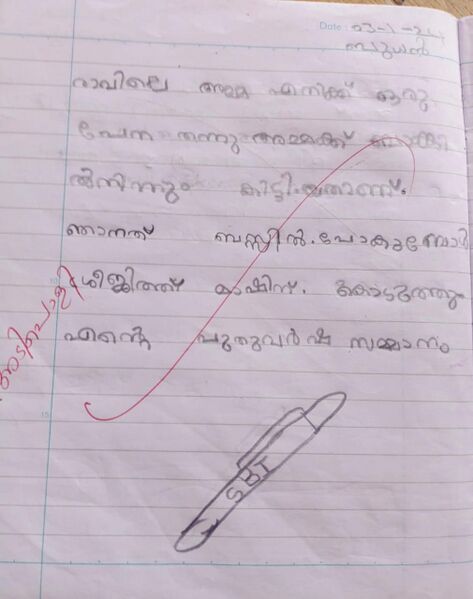 Date : 03-1-24
ബുധൻ
രാവിലെ അമ്മ എനിക്ക് ഒരു
പേന തന്നു അമ്മക്ക് ബാങ്കി
ൽനിന്നും കിട്ടിയതാണ്.
ഞാനത് ബസ്സിൽ പോകുമ്പോൾ
കൊടുത്തും
എൻ്റെ പുതുവർഷ സമ്മാനം
അടിപൊളി
SBI